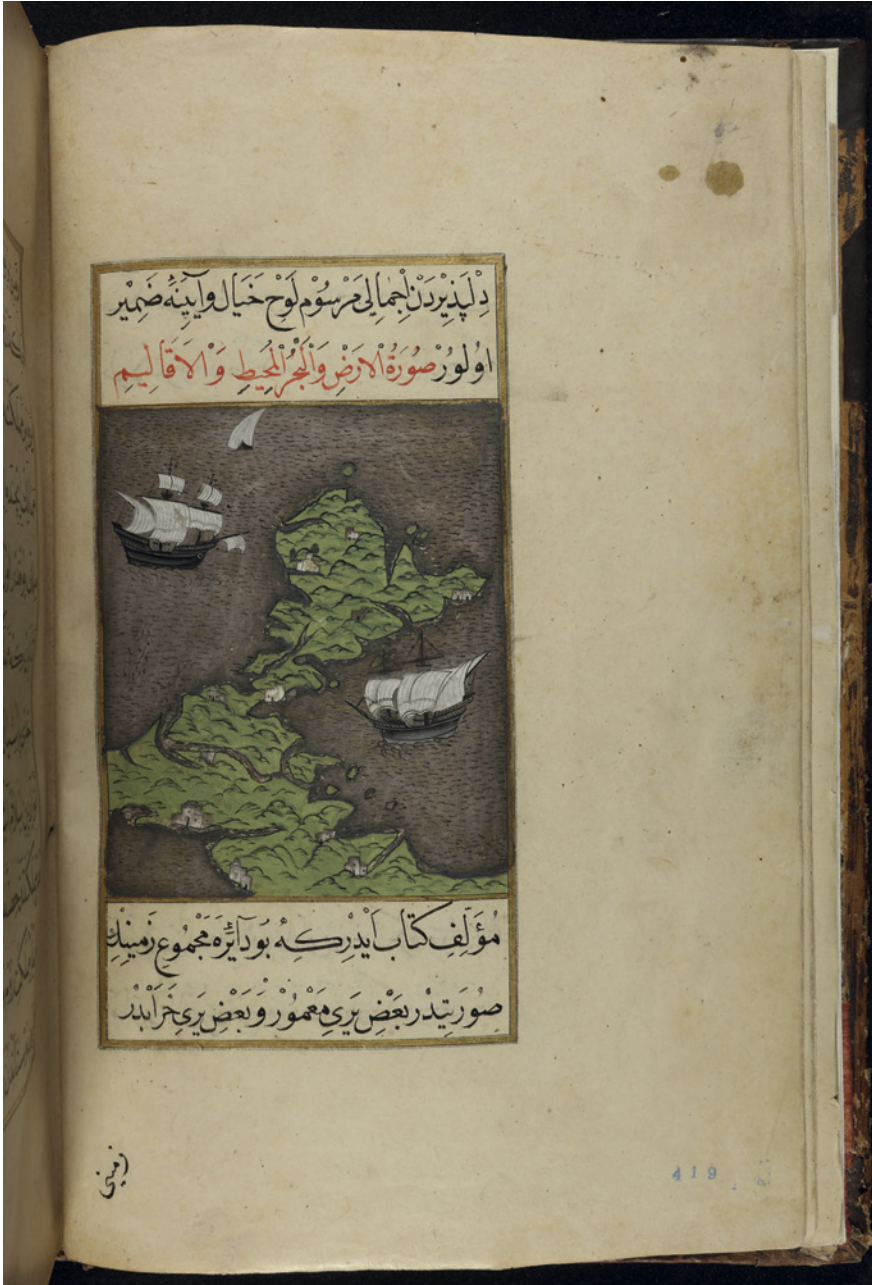 دِلْپَذِيرْدَنْ اِجْمَالِى مَرْسُوْمِ لَوْحِ خَيَالْ وَآيِنَهٔ ضَمِيْر
اوُلوُرْ صُورَةُ الْاَرَضِ وَالْبَحْرُ الْمُحِيطِ وَالْاَقَالِيمِ
مُؤَلِّفِ كتَاب اَيْدِرْكِهْ بُو دَآئِرَهٔ مَجْمُوعِ زَمِينِكْ
صُورَتِيدْر بَعْضِ يَرِى مَعْمُوْر وَبَعْضِ يَرِى خَرَابْدُر
زمينى
419